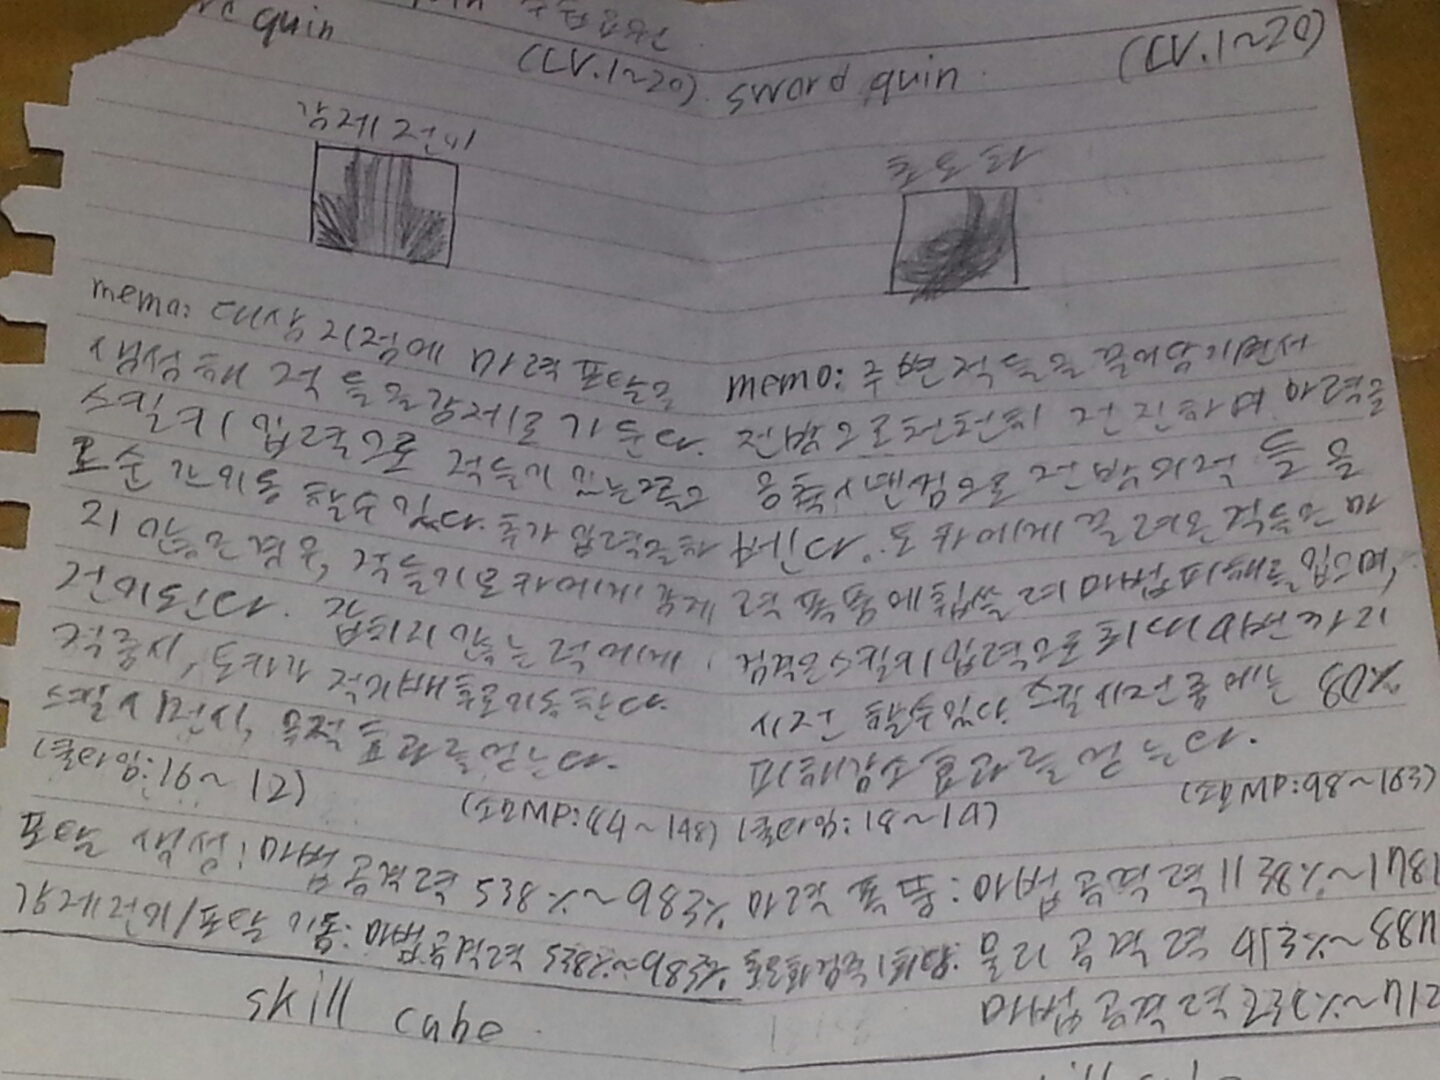 quin
(LV.1~20)
강제전이
memo: 대상 지점에 마력 포탈을
생성해 적들을 강제로 가둔다.
스킬키 입력으로 적들이 있는곳으
로 순간이동 할수 있다. 추가 입력을 하
지 않은 경우, 적들이 도하에게 강제
전이된다. 잡히지 않는 적에게
적중시, 도하가 적의 배후로 이동한다.
스킬 시전시, 무적 효과를 얻는다.
(쿨타임:16~12)
(소모MP:44~148)
포탈 생성: 마법공격력 538%~983%
강제전이/포탈 이동: 마법공격력 538%~983%
skill cube
sword quin
(LV.1~20)
memo: 주변 적들을 끌어당기면서
전방으로 천천히 전진하며 마력을
응축시킨 검으로 전방의 적들을
벤다. 도하에게 끌려온 적들은 마
력 폭풍에 휩쓸려 마법피해를 입으며,
검격은 스킬키 입력으로 최대 4번까지
시전 할수있다. 스킬 시전 중에는 80%
피해감소 효과를 얻는다.
(쿨타임:18~14)
(소모MP:98~163)
마력 폭풍: 마법공격력 1138%~1781
검격 1회당: 물리 공격력 453%~887
마법 공격력